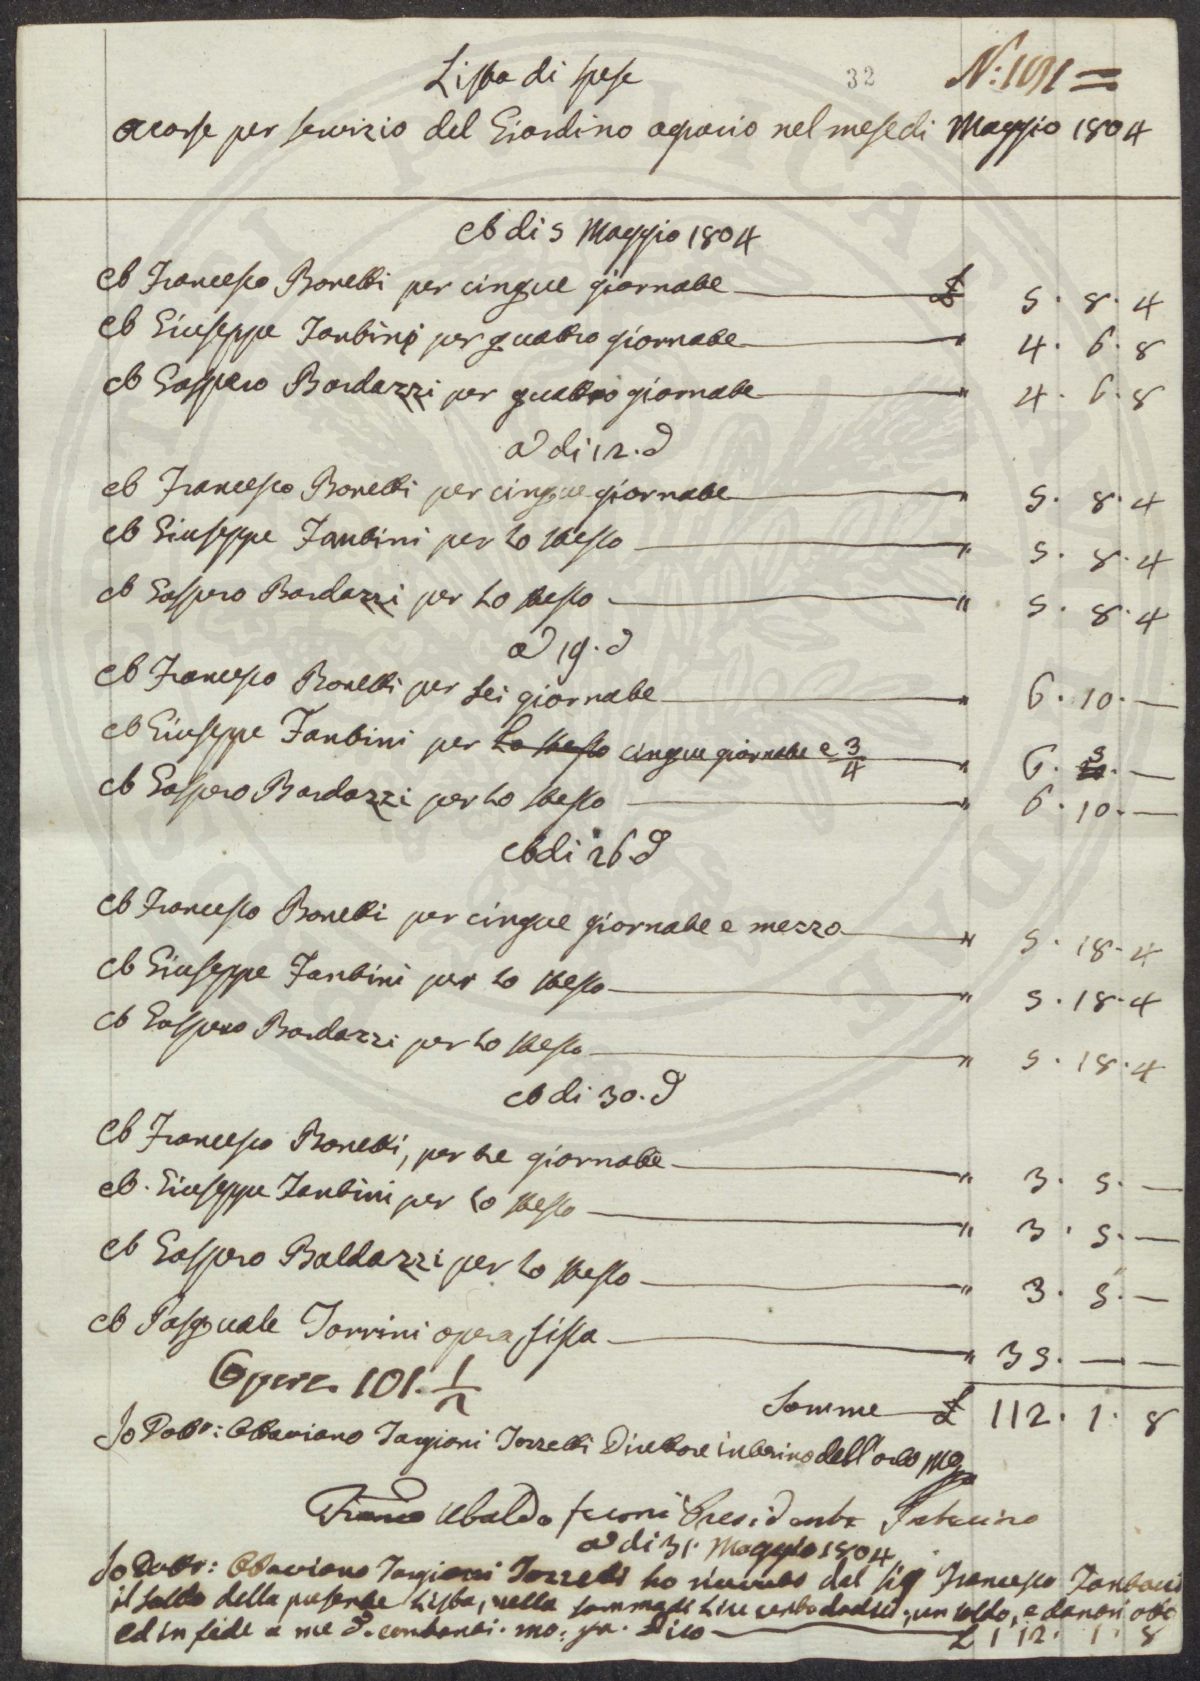 Lista di spese
32
N: 101 =
acorse per servizio del Giardino agrario nel mese di Maggio 1804
A di 5 Maggio 1804
A Francesco Bonetti per cinque giornate £ 5. 8. 4
A Giuseppe Fantini per quattro giornate " 4. 6. 8
A Gaspero Bardazzi per quattro giornate " 4. 6. 8
A di 12. d
A Francesco Bonetti per cinque giornate " 5. 8. 4
A Giuseppe Fantini per lo stesso " 5. 8. 4
A Gaspero Bardazzi per lo stesso " 5. 8. 4
A 19. d
A Francesco Bonetti per sei giornate " 6. 10. —
A Giuseppe Fantini per lo stesso cinque giornate e 3/4 " 6. 5. —
A Gaspero Bardazzi per lo stesso " 6. 10. —
A di 26. d
A Francesco Bonetti per cinque giornate e mezzo " 5. 18. 4
A Giuseppe Fantini per lo stesso " 5. 18. 4
A Gaspero Bardazzi per lo stesso " 5. 18. 4
A di 30. d
A Francesco Bonetti, per tre giornate " 3. 5. —
A. Giuseppe Fantini per lo stesso " 3. 5. —
A Gaspero Baldazzi per lo stesso " 3. 5. —
A Pasquale Torrini opera fissa " 35. — —
Opere 101. 1/2
Somma £ 112. 1. 8
Io Dott:: Ottaviano Targioni Tozzetti Direttore interino dell'orto
Ubaldo Feroni Presidente Interino
A di 31. Maggio 1804
Io Dott:: Ottaviano Targioni Tozzetti ho ricevuto dal Sig Francesco
il saldo della presente Lista, nella somma di Lire cento dodici, un soldo, e danari otto
ed in fede a me d. contanti. mo: pa. Dico £ 112. 1. 8